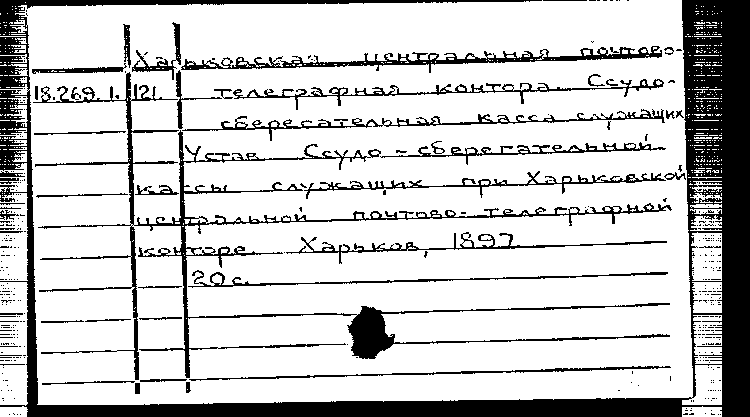 Харьковская центральная почтово-
18.269.1.121. телеграфная контора. Ссудо-
сберегательная касса служащих
Устав Ссудо-сберегательной
кассы служащих при Харьковской
центральной почтово-телеграфной
конторе. Харьков, 1897.
20 с.